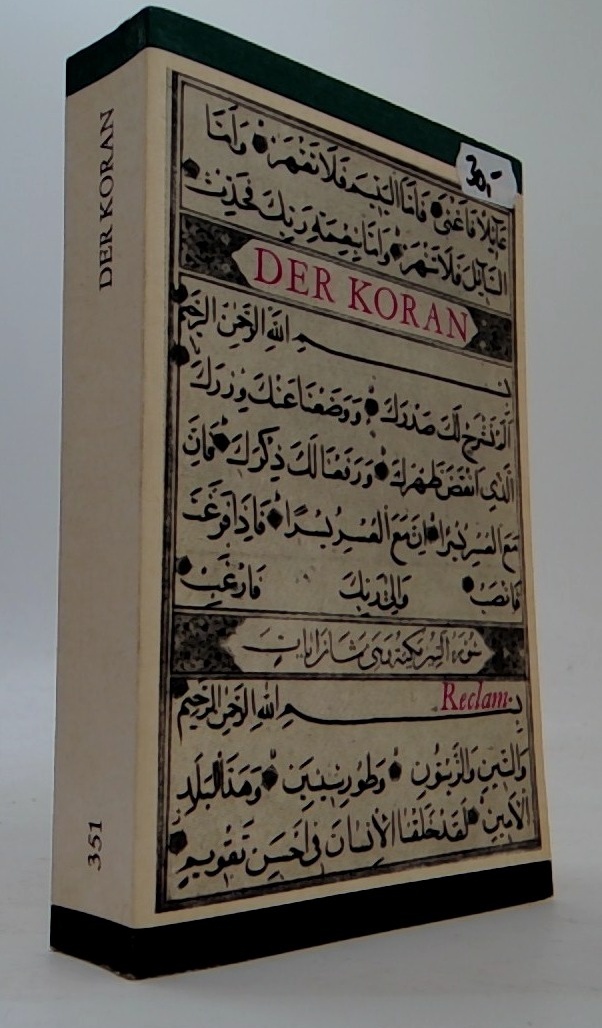 DER KORAN
351
30,-
عَائِلًا فَاَغْنٰى فَاَمَّا الْيَتِيمَ فَلَا تَقْهَرْ وَاَمَّا
السَّائِلَ فَلَا تَنْهَرْ وَاَمَّا بِنِعْمَةِ رَبِّكَ فَحَدِّثْ
DER KORAN
بِسْمِ اللّٰهِ الرَّحْمٰنِ الرَّحِيمِ
اَلَمْ نَشْرَحْ لَكَ صَدْرَكَ وَوَضَعْنَا عَنْكَ وِزْرَكَ
الَّذِي اَنْقَضَ ظَهْرَكَ وَرَفَعْنَا لَكَ ذِكْرَكَ فَاِنَّ
مَعَ الْعُسْرِ يُسْرًا اِنَّ مَعَ الْعُسْرِ يُسْرًا فَاِذَا فَرَغْتَ
فَانْصَبْ وَاِلٰى رَبِّكَ فَارْغَبْ
Reclam
بِسْمِ اللّٰهِ الرَّحْمٰنِ الرَّحِيمِ
وَالتِّينِ وَالزَّيْتُونِ وَطُورِ سِينِينَ وَهٰذَا الْبَلَدِ
الْاَمِينِ لَقَدْ خَلَقْنَا الْاِنْسَانَ فِي اَحْسَنِ تَقْوِيمٍ